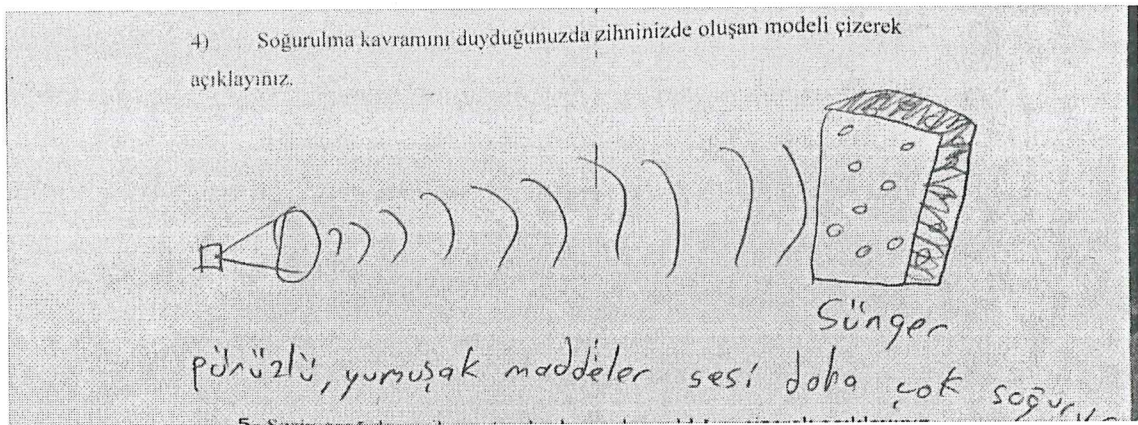 4) Soğurulma kavramını duyduğunuzda zihninizde oluşan modeli çizerek
açıklayınız.
Sünger
pürüzlü, yumuşak maddeler sesi daha çok